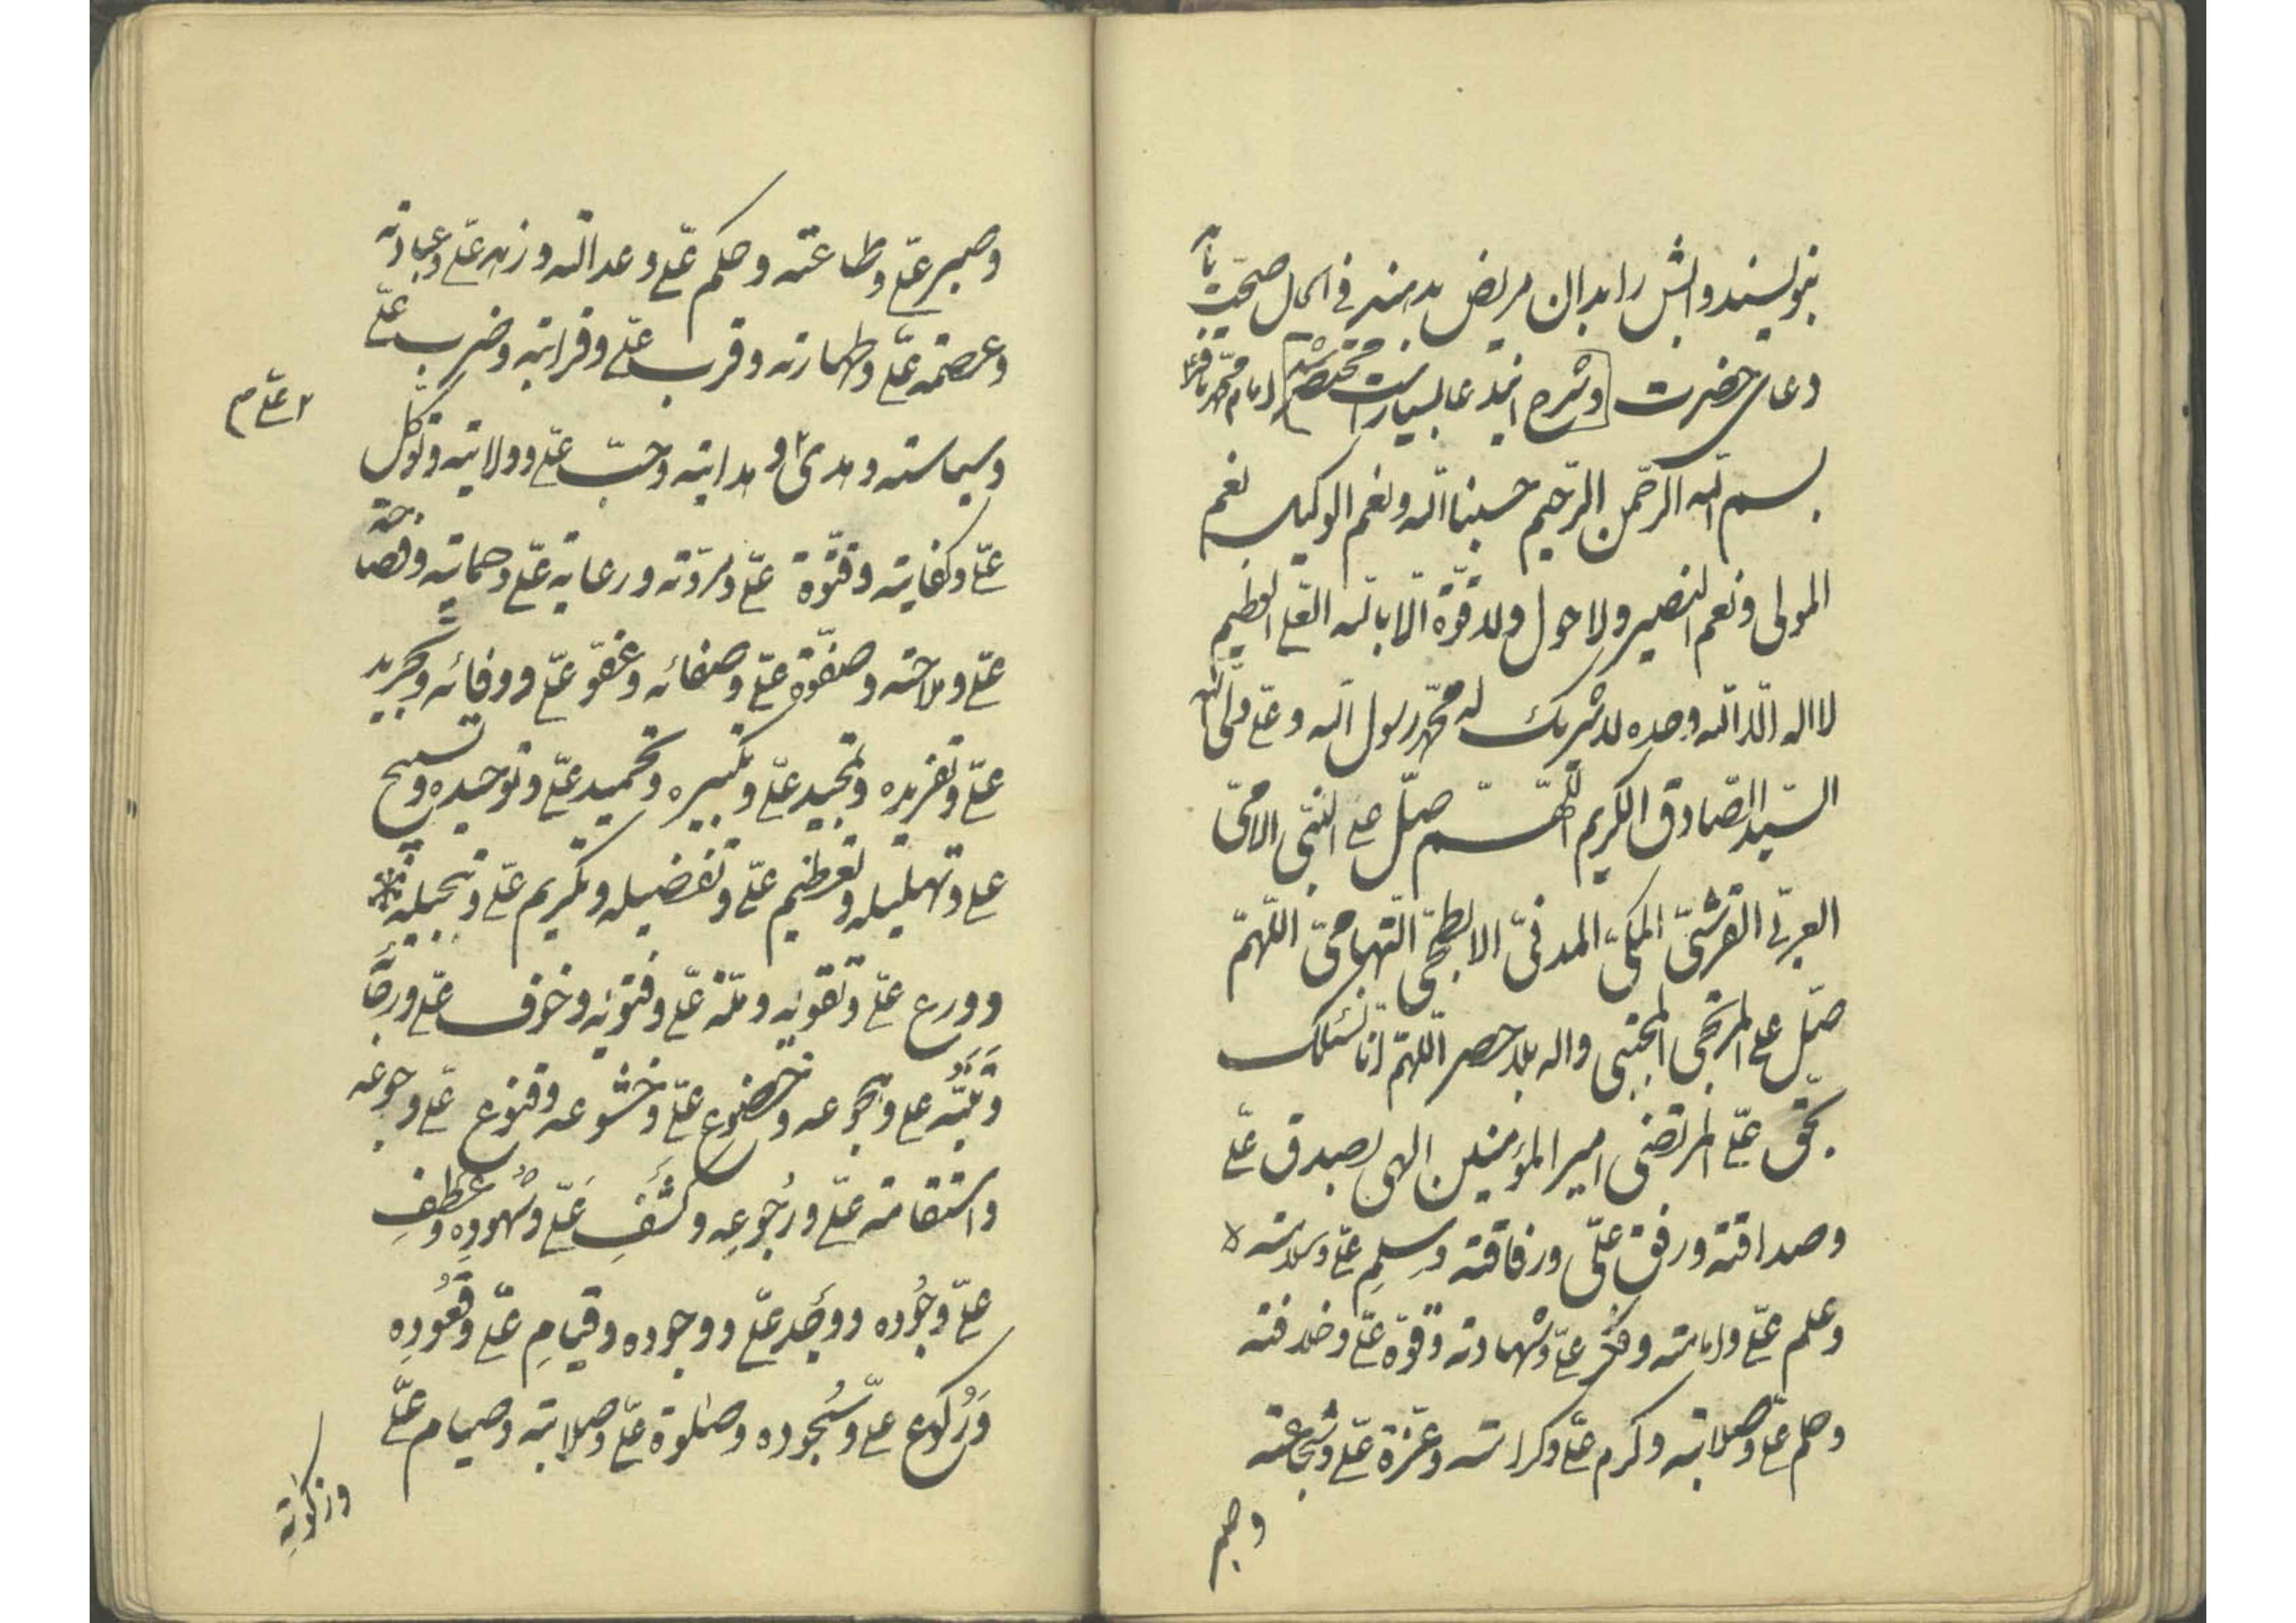 بنویسند و آبش را بدان مریض بدهند فی الحال صحّت یابد
دعای حضرت وشرح ایندعا بسیار است مختصر شد امام محمّد باقر
بسم الله الرّحمن الرّحیم حسبنا الله ونعم الوکیل نعم
المولی ونعم النصیر ولا حول ولا قوّة الّا بالله العلّی العظیم
لا اله الّا الله وحده لا شریک له محمّد رسول الله وعلی ولّی الله
السّید الصّادق الکریم اللّهمّ صلّ علی النّبی الامّی
العربّی القرشیّ المکیّ المدنیّ الابطحیّ التّهامیّ اللّهمّ
صلّ علی المرتجی المجتبی واله بلا حصر اللّهمّ انّا نسئلک
بحّق علّی المرتضی امیر المؤمنین الهی بصدق علّی
وصداقته ورفق علّی ورفاقته وسلم علّی وسلامته
وعلم علّی وامامته و علّی وشهادته وقوّة علّی وخلافته
وحلم علّی وصلابته وکرم علّی وکرامته وعزّة علّی وشجاعته
وصبر
وصبر علّی وطاعته وحکم علّی وعدالته وزهد علّی وعبادته
وعصمة علّی وطهارته وقرب علّی وقرابته وضرب علّی
وسیاسته وهدی و هدایته وحبّ علّی وولایته وتوکّل
علّی م
علّی وکفایته وفتّوة علّی ومروّته ورعایة علّی وحمایته وفصاحة
علّی وملاحته وصفّوة علّی وصفائه وعفوّ علّی ووفائه وتجرید
علّی وتفریده وتمجید علّی وتکبیره وتحمید علّی وتوحیده وتسبیح
علی وتهلیله وتعظیم علّی وتفضیله وتکریم علّی وتبجیله
وورع علّی وتقویه وملّة علّی وفتویه وخوف علّی ورجاء
علی و وخضوع علّی وخشوعه وقنوع علّی وجوعه
واستقامة علّی ورُجُوعِه وکشفِ عَلّی وشهودِه وعطفِ
علّی وجُوده ووجد علّی ووجوده وقیامِ علّی وقُعُودِه
وَرُکوع علّی وسُجُوده وصلوة علّی وصلابته وصیام علّی
وزکوتِه